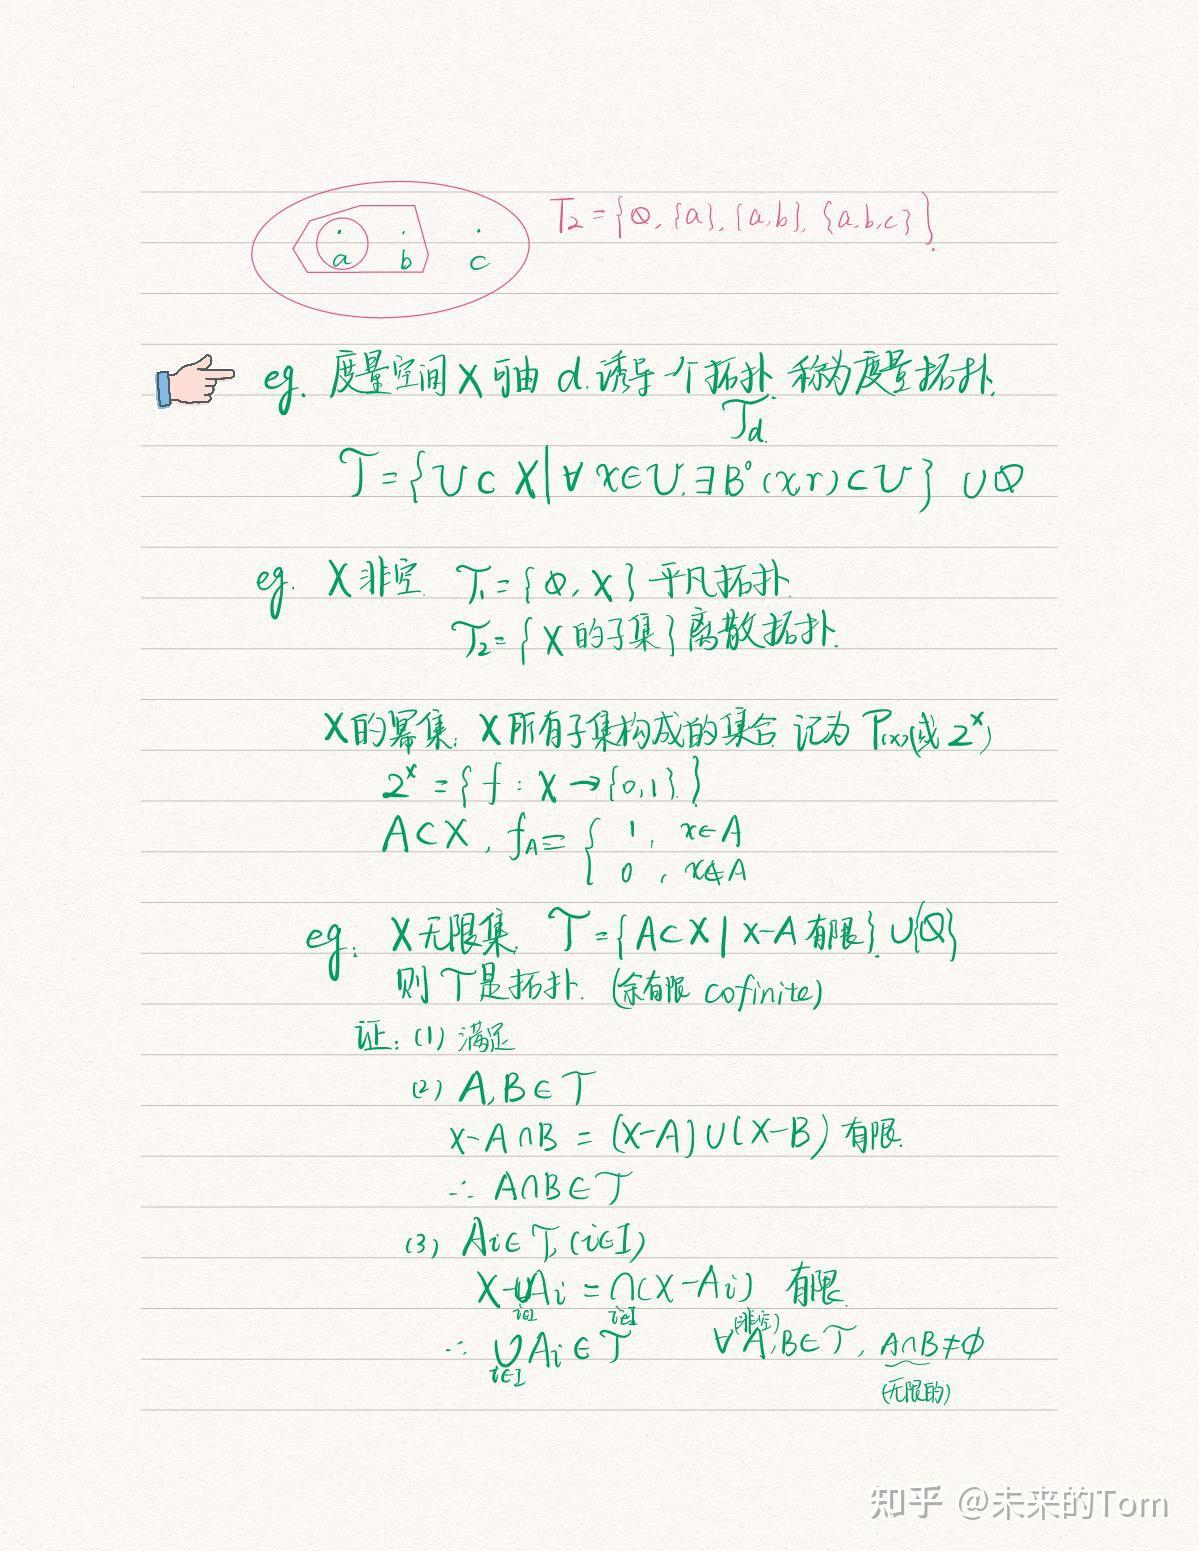 T₂={∅, {a}, {a,b}, {a,b,c}}.
a b c
eg. 度量空间 X 可由 d 诱导一个拓扑 称为度量拓扑.
T_d.
T={U⊂X|∀x∈U,∃B°(x,r)⊂U} ∪∅
eg. X非空. T₁={∅,X}平凡拓扑.
T₂={X的子集}离散拓扑.
X的幂集: X所有子集构成的集合 记为 P(x)(或 2^X)
2^X={f: X→{0,1}.}
A⊂X, f_A={ 1, x∈A
0, x∉A
eg: X无限集. T={A⊂X|X-A有限}.∪{∅}
则T是拓扑. (余有限 cofinite)
证: (1) 满足
(2) A,B∈T
X-A∩B=(X-A)∪(X-B)有限.
∴ A∩B∈T
(3) Ai∈T,(i∈I)
X-∪Ai=∩(X-Ai) 有限.
i∈I i∈I (非空)
∴ ∪Ai∈T ∀A,B∈T, A∩B≠∅
i∈I (无限的)
知乎 @未来的Tom